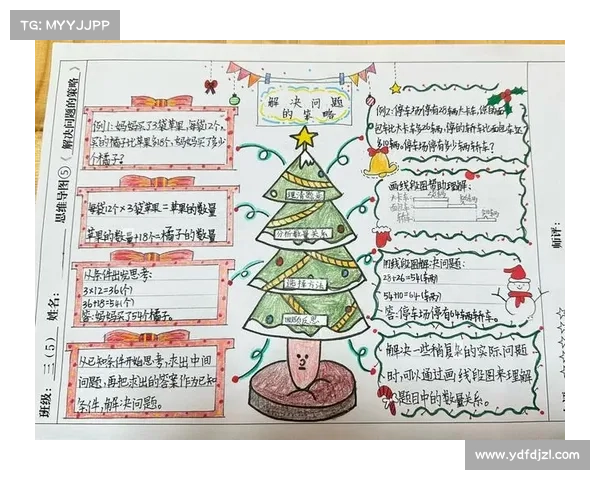 TG: MYYJJPP
思维导图⑤《解决问题的策略》
班级: 三(5) 姓名:
师评:
解决问题
的策略
例1:妈妈买了3袋苹果,每袋12个,
买的橘子比苹果多18个,妈妈买了多少
个橘子?
每袋12个×3袋苹果=苹果的数量
苹果的数量+18个=橘子的数量
从条件出发思考:
3×12=36(个)
36+18=54(个)
答:妈妈买了54个橘子。
从已知条件开始思考,求出中间
问题,再把求出的答案作为已知
条件,解决问题。
理清题意
分析数量关系
选择方法
回顾反思
例2:停车场停有28辆大卡车,停的面
包车比大卡车多26辆,停的轿车比面包车还
多10辆。停车场停有多少辆轿车?
画线段图帮助理解:
大卡车:
面包车:
轿车:
用线段图解决问题:
28+26=54(辆)
54+10=64(辆)
答:停车场停有64辆轿车。
解决一些稍复杂的实际问题
时,可以通过画线段图来理解
题目中的数量关系。
www.ydfdjzl.com